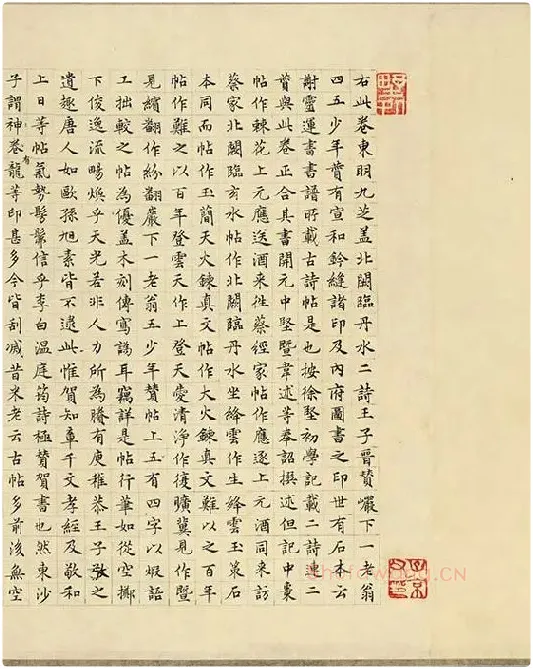 右此卷東明九芝蓋北闕臨丹水二詩王子晉贊巖下一老翁
四五少年贊有宣和鈐縫諸印及內府圖書之印世有石本云
謝靈運書書譜所載古詩帖是也按徐堅初學記載二詩連二
贊與此卷正合其書開元中堅暨韋述等奉詔撰述但記中棗
帖作棘花上元應送酒來在蔡經家帖作應逐上元酒同來訪
蔡家北闕臨玄水帖作北闕臨丹水坐絳雲作生絳雲玉策石
本同而帖作玉簡天火鍊真文帖作大火鍊真文難以之百年
帖作難之以百年登雲天作上登天愛清淨作復曠冀見作暨
見繽翻作紛翻巖下一老翁五少年贊帖上五有四字以嘏語
工拙較之帖為優蓋木刻傳寫譌耳竊詳是帖行筆如從空擲
下俊逸流暢煥乎天光若非人力所為賸有庾稚恭王子敬之
遺趣唐人如歐孫旭素皆不逮此惟賀知章千文孝經及敬和
上日等帖氣勢髣髴信乎李白溫庭筠詩極贊賀書也然東沙
子謂卷有神龍等印甚多今皆刮滅昔米老云古帖多前後無空